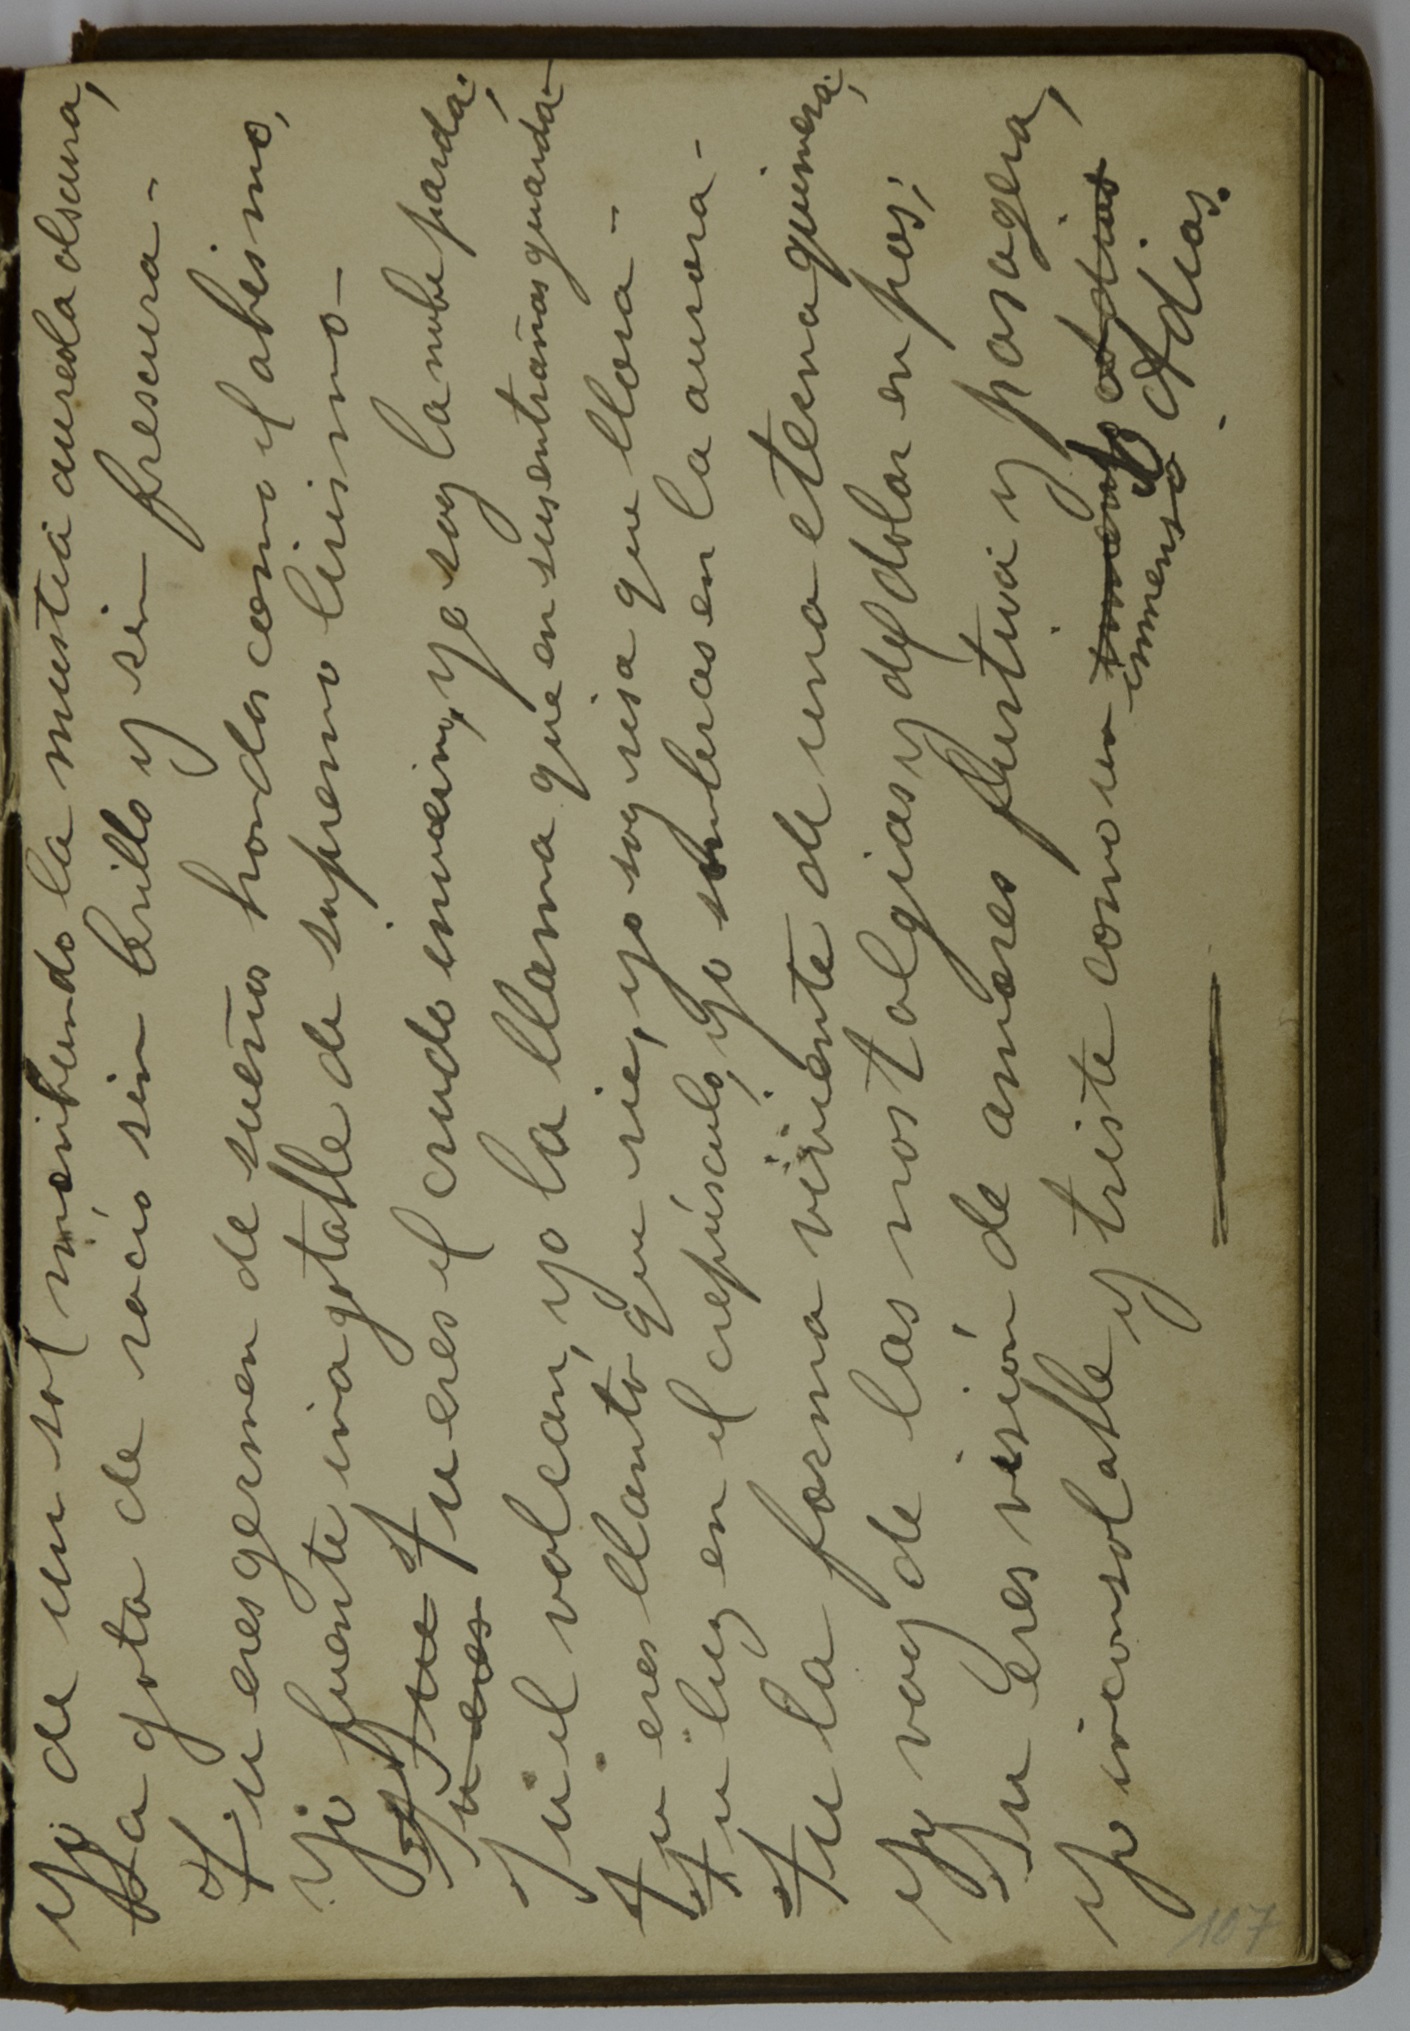 Yo de un sol moribundo la mustia aureola obscura,
La gota de rocio sin brillo y sin frescura -
Tu eres germen de sueños hondos como el abismo,
Yo fuente inagotable de supremo lirismo -
Tu Tu eres el crudo invierno, yo soy la nube parda;
Tu eres
Tu el volcan, yo la llama que en sus entrañas guarda -
Tu eres llanto que rie, yo soy risa que llora -
Tu luz en el crepúsculo, yo sombras en la aurora -
Tu la forma viviente de una eterna quimera,
Yo voy de las nostalgias y del dolor en pos;
Tu eres visión de amores furtiva y pasagera,
Yo inconsolable y triste como un inmenso adios
inmenso Adios.
107